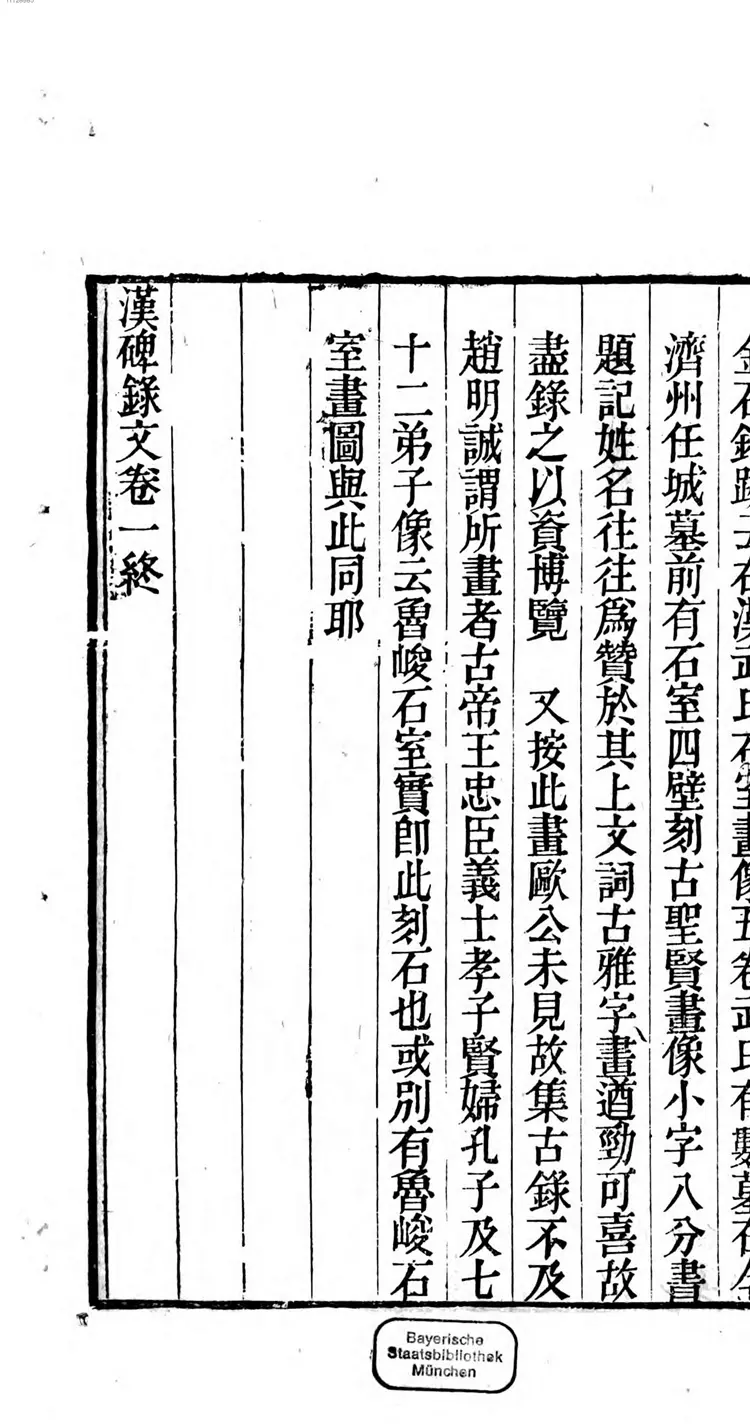 金石錄跋云右漢武氏石室畫像五卷武氏有數墓在今
濟州任城墓前有石室四壁刻古聖賢畫像小字八分書
題記姓名往往爲贊於其上文詞古雅字畫遒勁可喜故
盡錄之以資博覽　又按此畫歐公未見故集古錄不及
趙明誠謂所畫者古帝王忠臣義士孝子賢婦孔子及七
十二弟子像云魯峻石室實卽此刻石也或別有魯峻石
室畫圖與此同耶
漢碑錄文卷一終
Bayerische
Staatsbibliothek
München